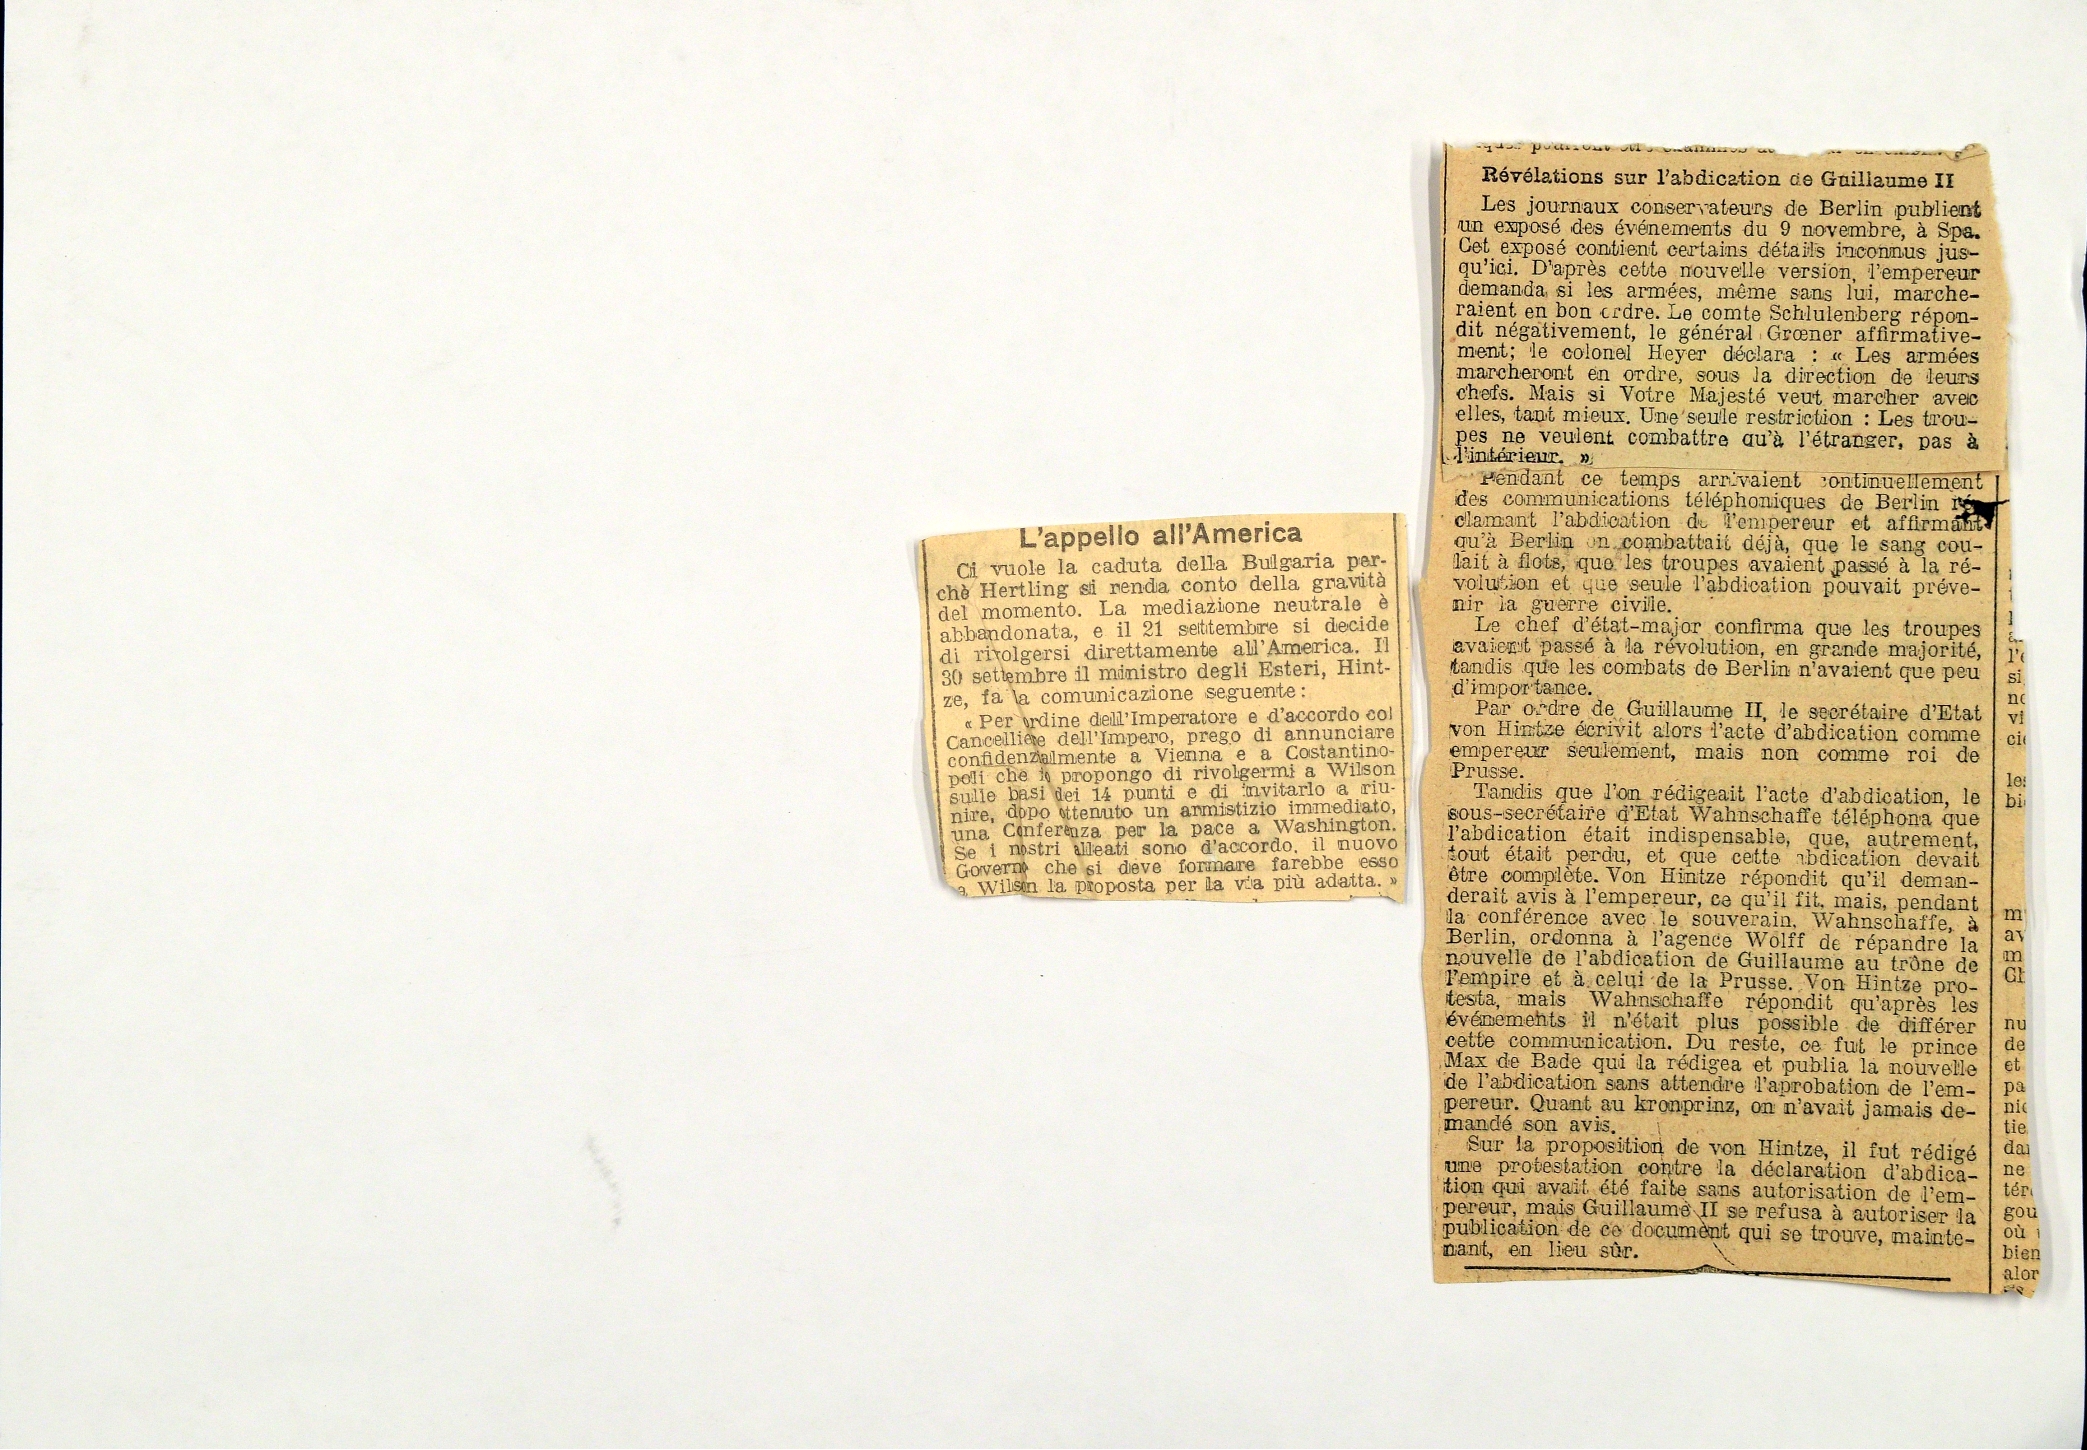 L'appello all'America
Ci vuole la caduta della Bulgaria per-
chè Hertling si renda conto della gravità
del momento. La mediazione neutrale è
abbandonata, e il 21 settembre si decide
di rivolgersi direttamente all'America. Il
30 settembre il ministro degli Esteri, Hint-
ze, fa la comunicazione seguente:
« Per ordine dell'Imperatore e d'accordo col
Cancelliere dell'Impero, prego di annunciare
confidenzialmente a Vienna e a Costantino-
poli che io propongo di rivolgermi a Wilson
sulle basi dei 14 punti e di invitarlo a riu-
nire, dopo ottenuto un armistizio immediato,
una Conferenza per la pace a Washington.
Se i nostri alleati sono d'accordo, il nuovo
Governo che si deve formare farebbe esso
a Wilson la proposta per la via più adatta. »
Révélations sur l'abdication de Guillaume II
Les journaux conservateurs de Berlin publient
un exposé des événements du 9 novembre, à Spa.
Cet exposé contient certains détails inconnus jus-
qu'ici. D'après cette nouvelle version, l'empereur
demanda si les armées, même sans lui, marche-
raient en bon ordre. Le comte Schlulenberg répon-
dit négativement, le général Grœner affirmative-
ment; le colonel Heyer déclara : « Les armées
marcheront en ordre, sous la direction de leurs
chefs. Mais si Votre Majesté veut marcher avec
elles, tant mieux. Une seule restriction : Les trou-
pes ne veulent combattre qu'à l'étranger, pas à
l'intérieur. »
Pendant ce temps arrivaient continuellement
des communications téléphoniques de Berlin ré-
clamant l'abdication de l'empereur et affirmant
qu'à Berlin on combattait déjà, que le sang cou-
lait à flots, que les troupes avaient passé à la ré-
volution et que seule l'abdication pouvait préve-
nir la guerre civile.
Le chef d'état-major confirma que les troupes
avaient passé à la révolution, en grande majorité,
tandis que les combats de Berlin n'avaient que peu
d'importance.
Par ordre de Guillaume II, le secrétaire d'Etat
von Hintze écrivit alors l'acte d'abdication comme
empereur seulement, mais non comme roi de
Prusse.
Tandis que l'on rédigeait l'acte d'abdication, le
sous-secrétaire d'Etat Wahnschaffe téléphona que
l'abdication était indispensable, que, autrement,
tout était perdu, et que cette abdication devait
être complète. Von Hintze répondit qu'il deman-
derait avis à l'empereur, ce qu'il fit, mais, pendant
la conférence avec le souverain, Wahnschaffe, à
Berlin, ordonna à l'agence Wolff de répandre la
nouvelle de l'abdication de Guillaume au trône de
l'empire et à celui de la Prusse. Von Hintze pro-
testa, mais Wahnschaffe répondit qu'après les
événements il n'était plus possible de différer
cette communication. Du reste, ce fut le prince
Max de Bade qui la rédigea et publia la nouvelle
de l'abdication sans attendre l'aprobation de l'em-
pereur. Quant au kronprinz, on n'avait jamais de-
mandé son avis.
Sur la proposition de von Hintze, il fut rédigé
une protestation contre la déclaration d'abdica-
tion qui avait été faite sans autorisation de l'em-
pereur, mais Guillaume II se refusa à autoriser la
publication de ce document qui se trouve, mainte-
nant, en lieu sûr.